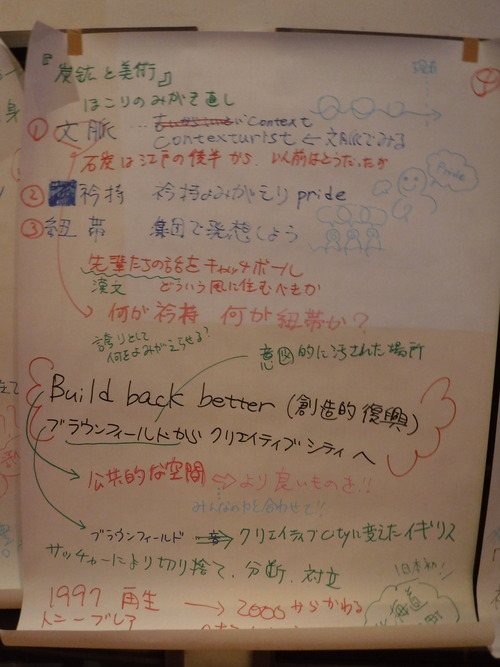 『炭鉱と美術』
ほこりのみがき直し
現在
④
① 文脈 … Context
Contexturist ← 文脈でみる
石炭は江戸の後半から、以前はどうだったか
② 衿持 衿持よみがえり pride
Pride
③ 紐帯 集団で発想しよう
先輩たちの話をキャッチボール
漢文 どういう風に住むべきか
何が衿持 何が紐帯か?
誇りとして
何をよみがえらせる?
意図的に汚された場所
Build back better (創造的復興)
ブラウンフィールドから クリエイティブシティへ
公共的な空間 ⇨ より良いものを!!
みんなの力と合わせて!!
ブラウンフィールド ⇒ クリエイティブCityに変えたイギリス
サッチャーにより切り捨て、分断、対立
日本わ!
1997 再生 → 2000からかわる
トニーブレア